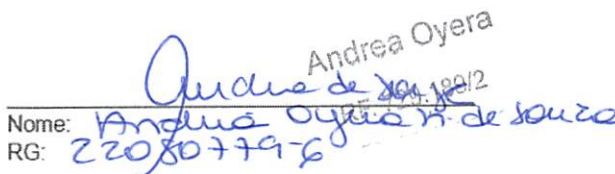 Andrea Oyera
Andrea de Souza
Nome: Andrea Oyera N. de Souza
RG: 22080779-6